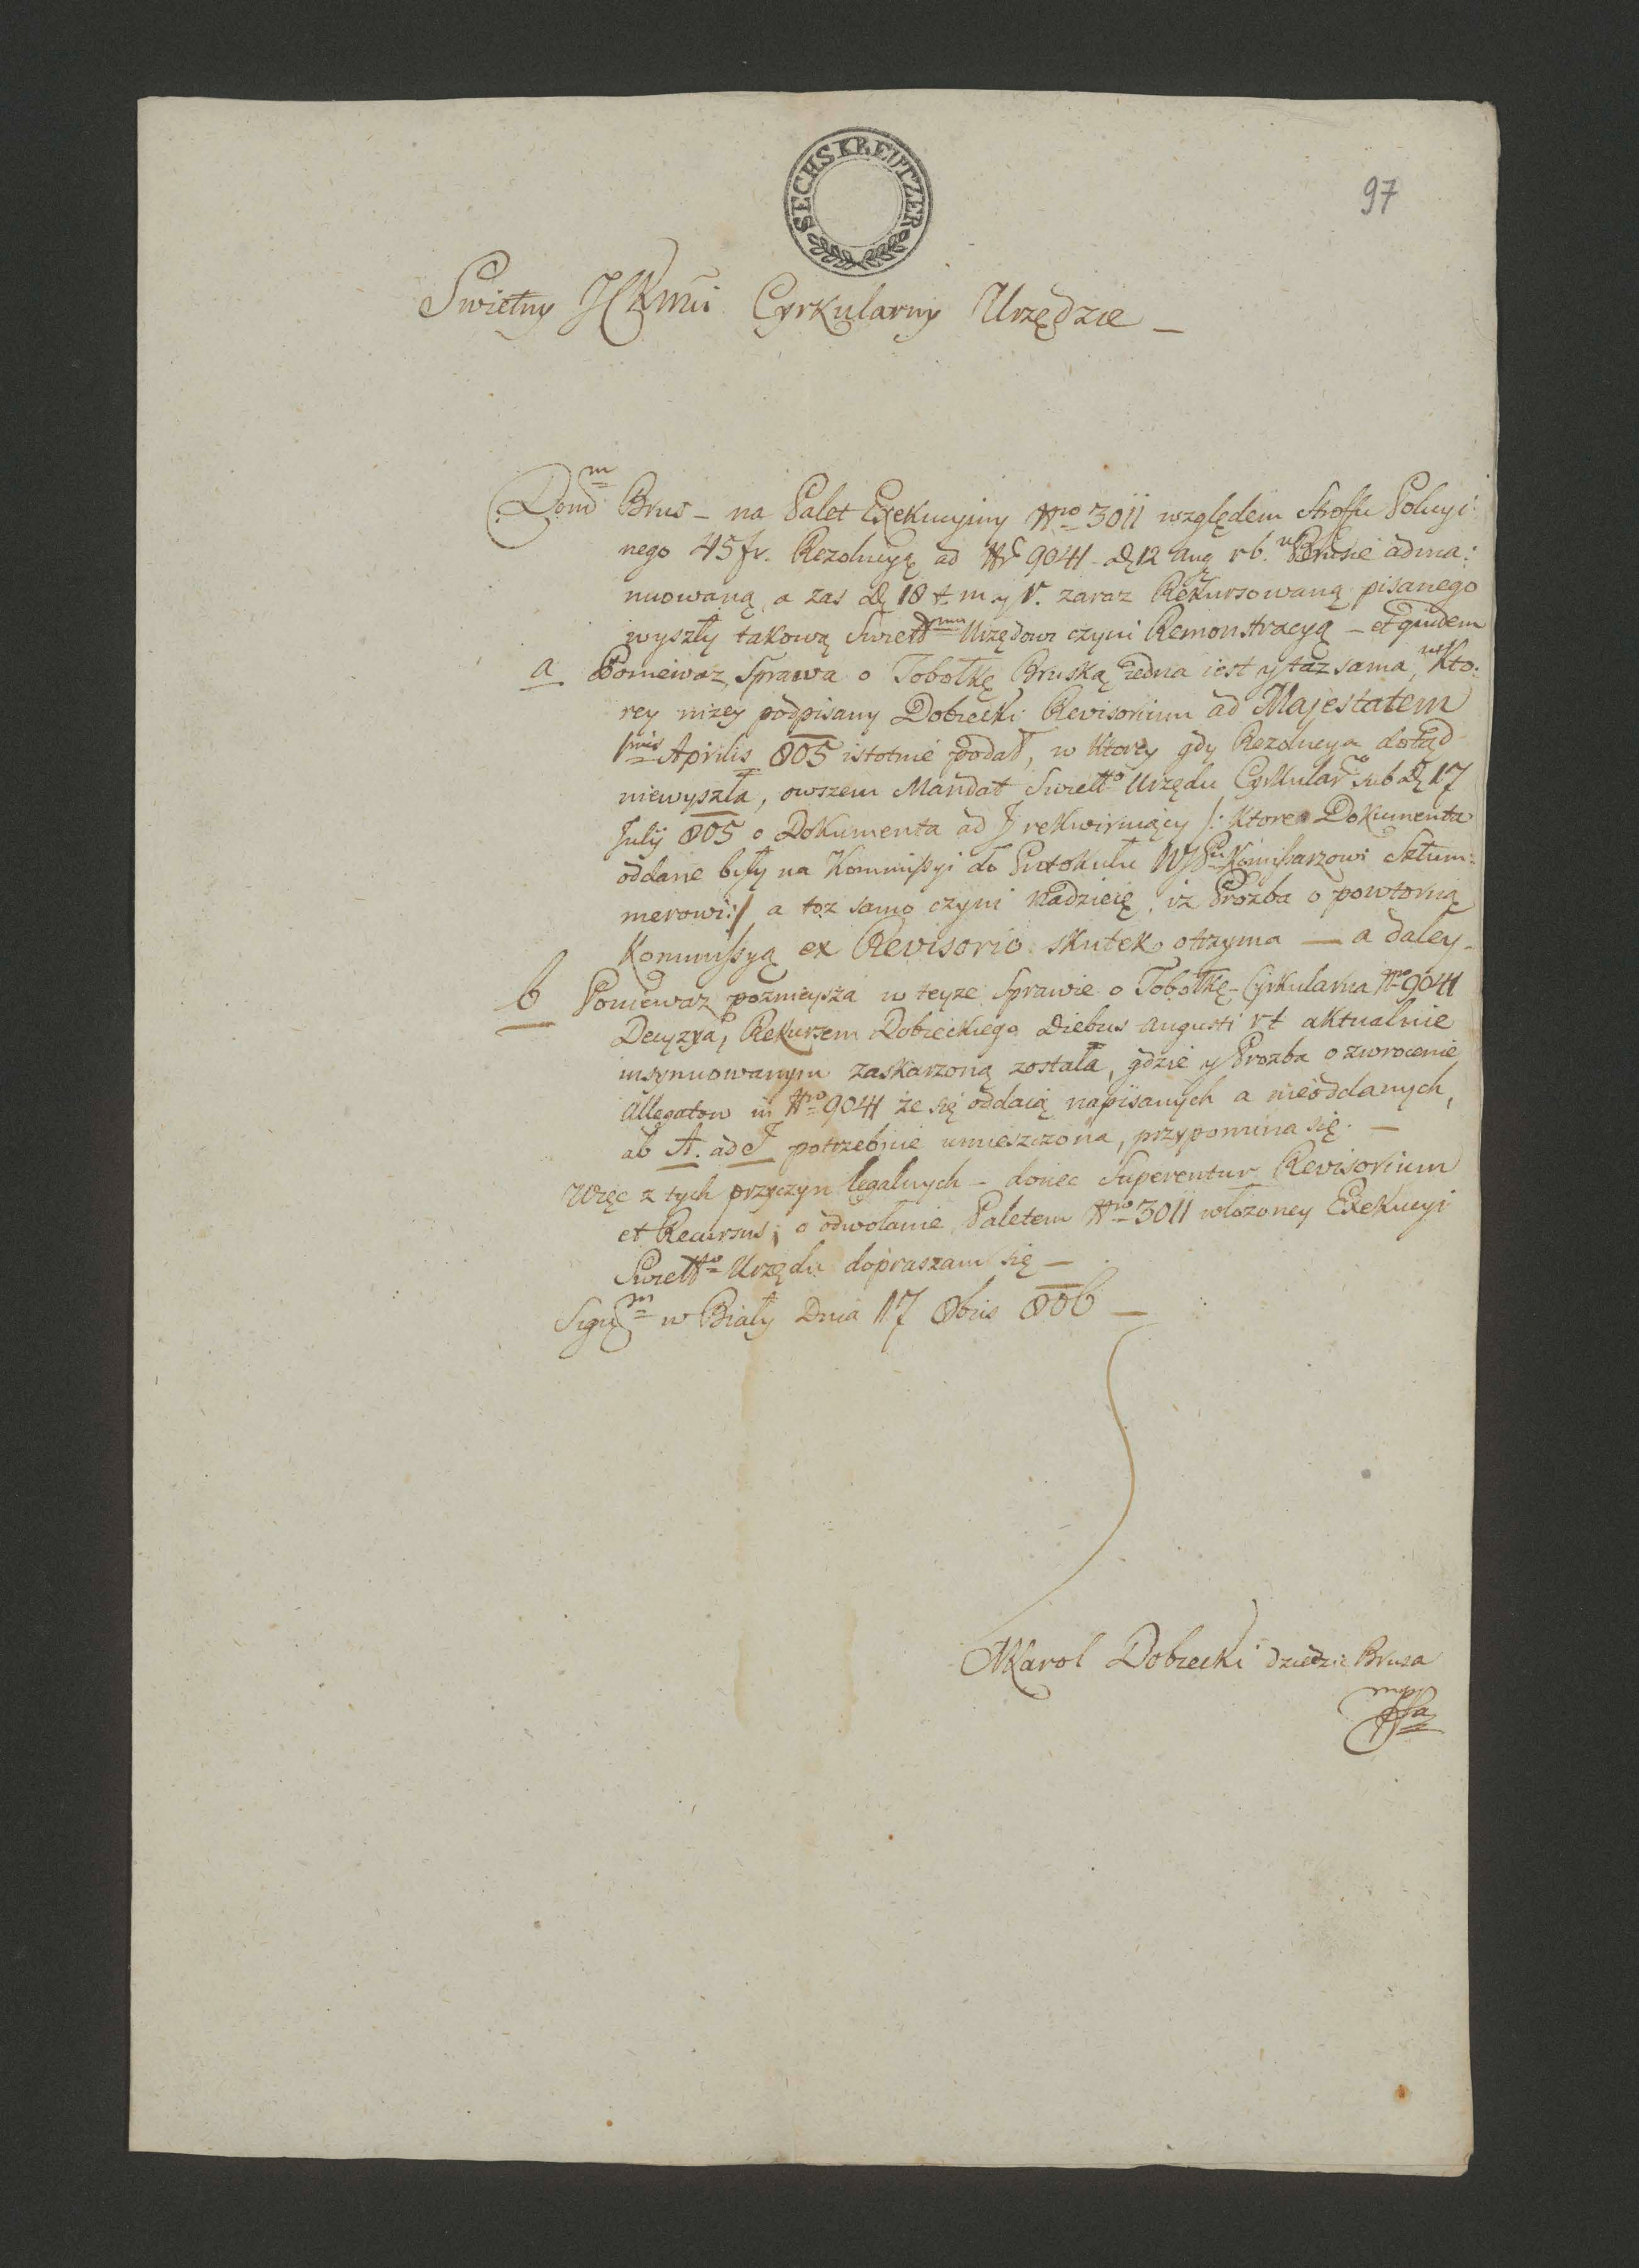 SECHS KREUTZER
97
Swietny JCKMci Cyrkularny Urzędzie _
Dom͞m Brus – na Palet Exekucyiny Nro 3011 względem Stroffu Policyi:
nego 45 fr. Rezolucyą ad Nr 9041 12 Aug rb. w Brusie adma:
nuowaną, a zas 18 t. m. y r. zaraz Rekursowaną pisanego
wyszły takową Swiettmu Urzędowi czyni Remonstracyą – et quidem
a Poniewaz Sprawa o Tobołkę Bruską Jedna iest y taz sama, w Kto:
rey nizey podpisany Dobiecki Revisorium ad Majestatem
1mis Aprilis 805 istotnie podał, w Ktorey gdy Rezolucya dotąd
niewyszła, owszem Mandat Swiettgo Urzędu Cyrkulargo sub 17
July 805 o Dokumenta ad J rekwiruiący /: Ktore Dokumenta
oddane były na Kommissyi do Protokułu Komissarzowi Sztum:
merowi :/ a toz samo czyni Nadzieię, iz Prozba o powtorną
Kommissyą ex Revisorio skutek otrzyma — a daley –
b Poniewaz poznieysza w teyze Sprawie o Tobołkę – Cyrkularna Nro 9041
Decyzya, Rekursem Dobieckiego Diebus Augusti rt aktualnie
insynuowanym zaskarzoną została, gdzie y Prozba o zwrocenie
Allegatow in Nro 9041 że się oddaią napisanych a nieoddanych,
ab A. ad J potrzebnie umieszczona, przypomina się. —
Więc z tych przyczyn legalnych – donec Superentur Revisorium
et Recursus, o odwołanie Paletem Nro 3011 włozoney Exekucyi
Swiettgo Urzędu dopraszam się —
Sign͞m w Biały Dnia 17 8bris 806 —
Karol Dobiecki dziedzic Brusa
mpp